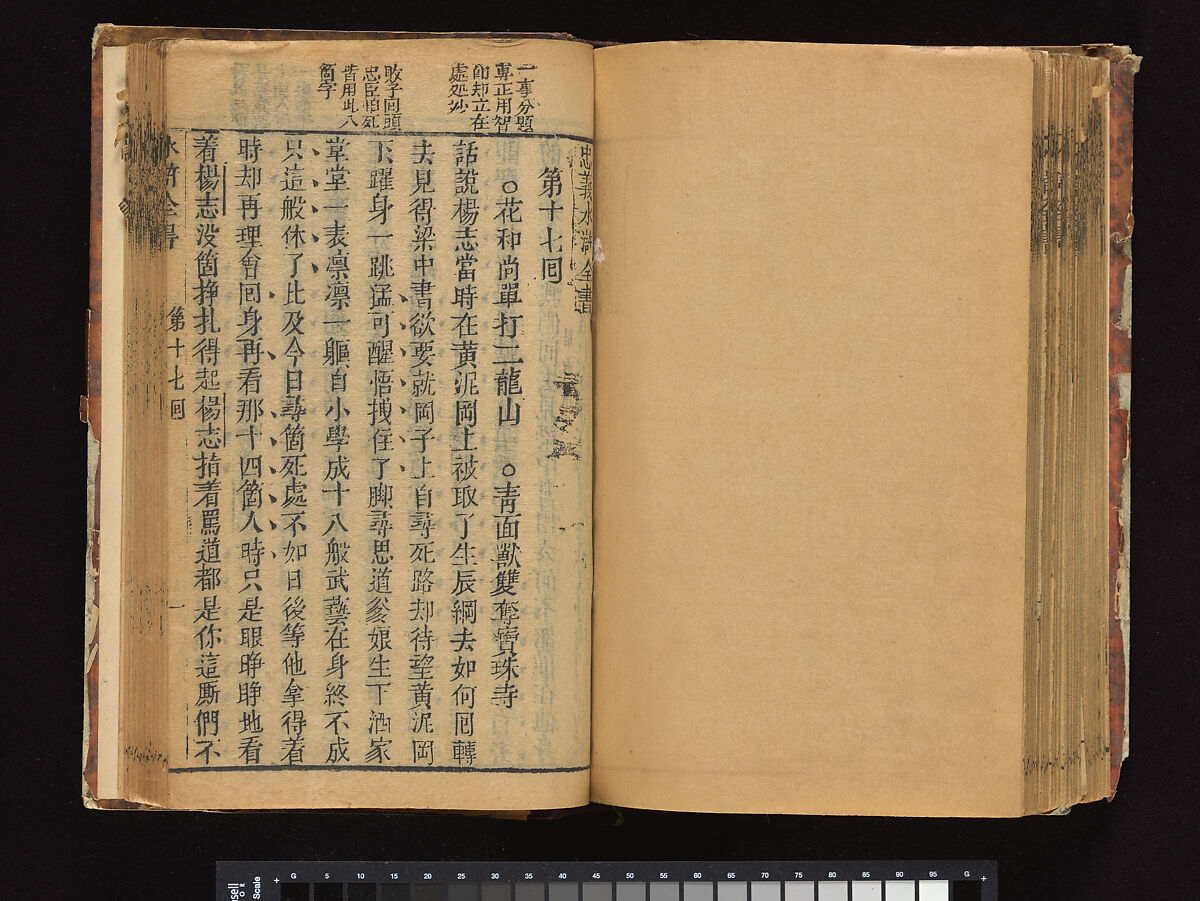 忠義水滸全書
第十七回
○花和尚單打二龍山 ○青面獸雙奪寶珠寺
話說楊志當時在黃泥岡上被取了生辰綱去如何回轉
去見得梁中書欲要就岡子上自尋死路却待望黃泥岡
下躍身一跳猛可醒悟拽住了脚尋思道爹娘生下洒家
堂堂一表凛凛一軀自小學成十八般武藝在身終不成
只這般休了比及今日尋箇死處不如日後等他拿得着
時却再理會回身再看那十四箇人時只是眼睁睁地看
着楊志没箇挣扎得起楊志指着罵道都是你這厮們不
一事分題
專正用智
即却立在
處処妙
敗子回頭
忠臣怕死
皆用此八
箇字
水滸全書
第十七回
一
G 5 10 15 20 25 30 35 40 45 50 55 60 65 70 75 80 85 90 95 G
Scale